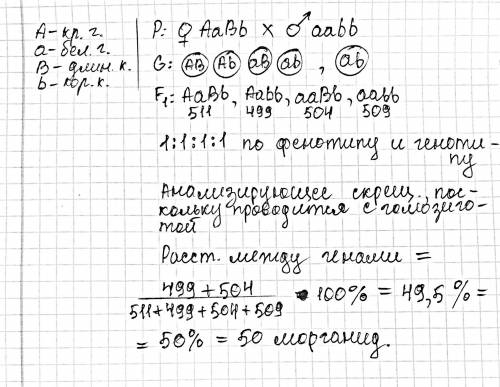 А-кр. г.
а-бел. г.
В-длин. к.
b-кор. к.
P: ♀ AaBb × ♂ aabb
G: AB Ab aB ab , ab
F₁: AaBb, Aabb, aaBb, aabb
511 499 504 509
1:1:1:1 по фенотипу и геноти-
пу
Анализирующее скрещ., пос-
кольку проводится с гомозиго-
той
Расст. между генами =
499+504
511+499+504+509
• 100% = 49,5% =
= 50% = 50 морганид.